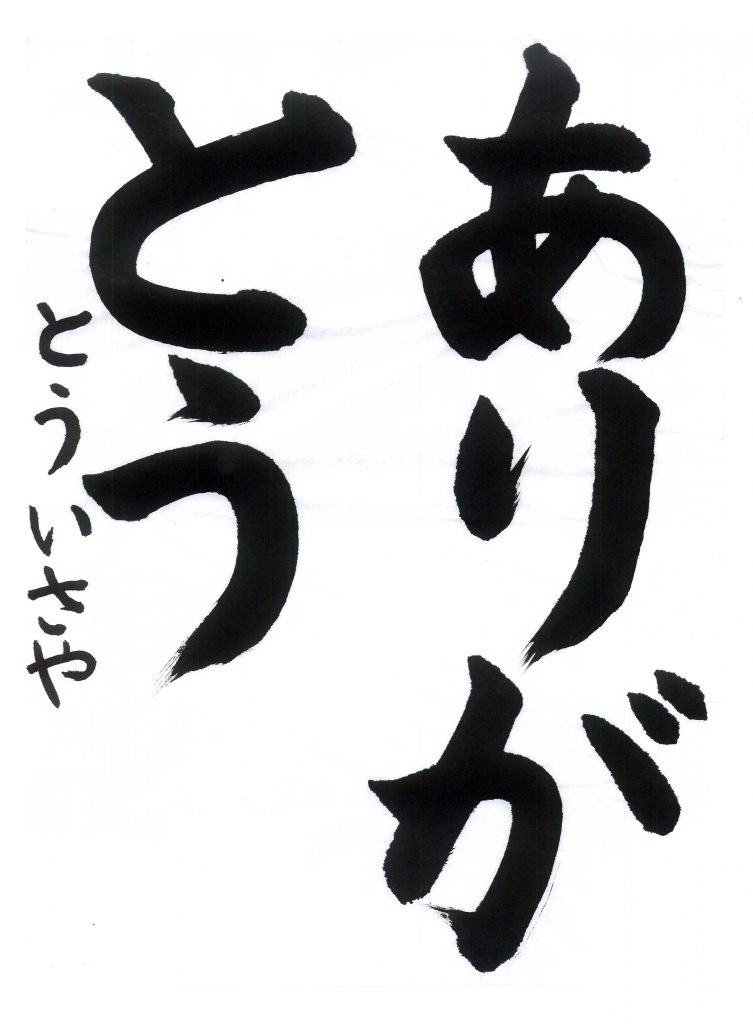 ありが
とう
とういさや